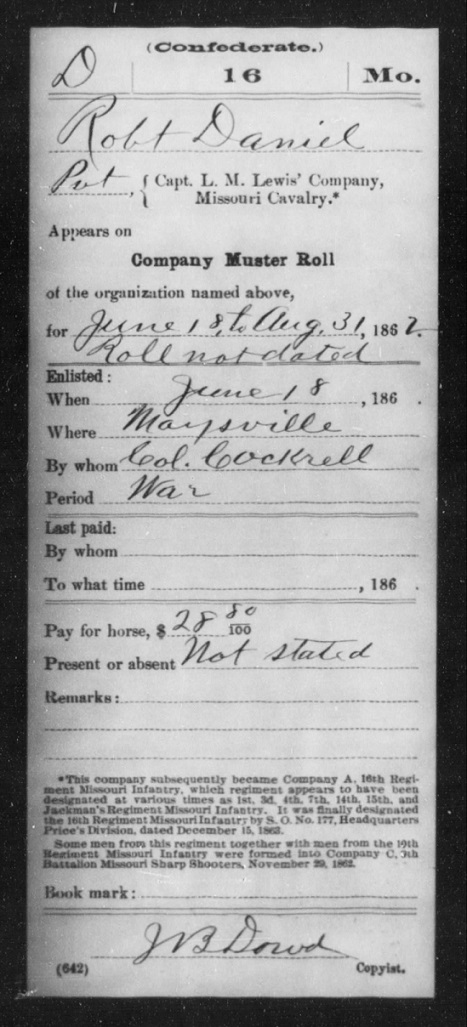 (Confederate.)
D 16 Mo.
Robt Daniel
Pvt, { Capt. L. M. Lewis' Company,
Missouri Cavalry.*
Appears on
Company Muster Roll
of the organization named above,
for June 18, to Aug. 31, 1862.
Roll not dated
Enlisted:
When June 18, 186 .
Where Maysville
By whom Col. Cockrell
Period War
Last paid:
By whom
To what time , 186 .
Pay for horse, $ 28 80/100
Present or absent Not stated
Remarks:
*This company subsequently became Company A, 16th Regi-
ment Missouri Infantry, which regiment appears to have been
designated at various times as 1st, 3d, 4th, 7th, 14th, 15th, and
Jackman's Regiment Missouri Infantry. It was finally designated
the 16th Regiment Missouri Infantry by S. O. No. 177, Headquarters
Price's Division, dated December 15, 1863.
Some men from this regiment together with men from the 19th
Regiment Missouri Infantry were formed into Company C, 9th
Battalion Missouri Sharp Shooters, November 29, 1862.
Book mark:
J B Dowd
(642) Copyist.